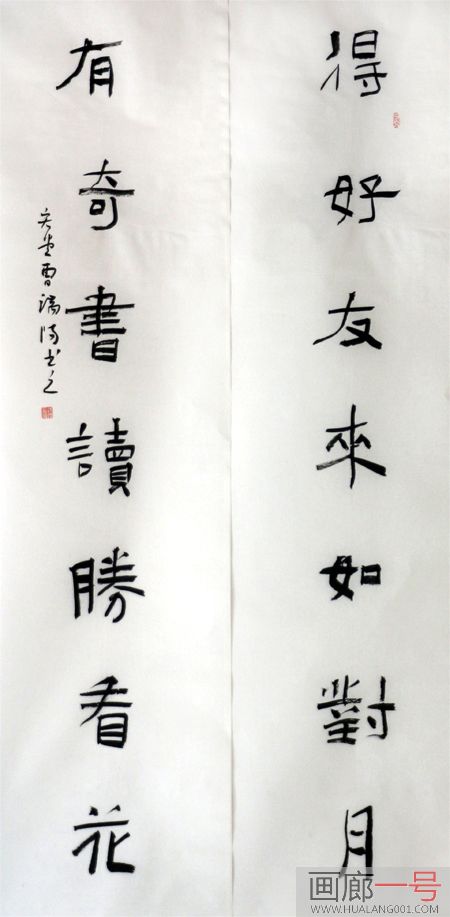 得好友來如對月
有奇書讀勝看花
画廊一号
WWW.HUALANG001.COM